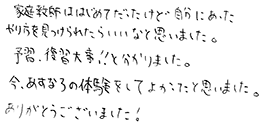 家庭教師ははじめてだったけど自分にあった
やり方を見つけられたらいいなと思いました。
予習、復習大事!!と分かりました。
今、あすなろの体験をしてよかったと思いました。
ありがとうございました!